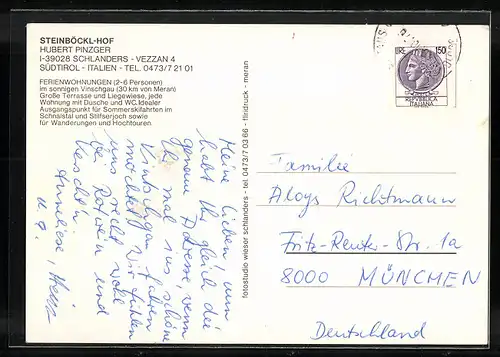 STEINBÖCKL-HOF
HUBERT PINZGER
I-39028 SCHLANDERS - VEZZAN 4
SÜDTIROL - ITALIEN - TEL. 0473/7 21 01
FERIENWOHNUNGEN (2-6 Personen)
im sonnigen Vinschgau (30 km von Meran)
Große Terrasse und Liegewiese, jede
Wohnung mit Dusche und WC. Idealer
Ausgangspunkt für Sommerskifahrten im
Schnalstal und Stilfserjoch sowie
für Wanderungen und Hochtouren.
Meine Lieben nun
habt Ihr gleich die
genaue Adresse, wenn
Ihr mal ins schöne
kommen
möchtet. Wir fühlen
uns recht wohl
bei Rotwein und
Anneliese, Heinz
u. J.
fotostudio wieser schlanders - tel 0473/7 03 66 - filmdruck - meran
LIRE 150
REPUBBLICA
ITALIANA
Familie
Aloys Richtmann
Fritz-Reuter-Str. 1a
8000 MÜNCHEN
Deutschland